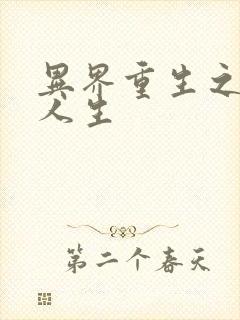 異界重生之
人生
第二个春天